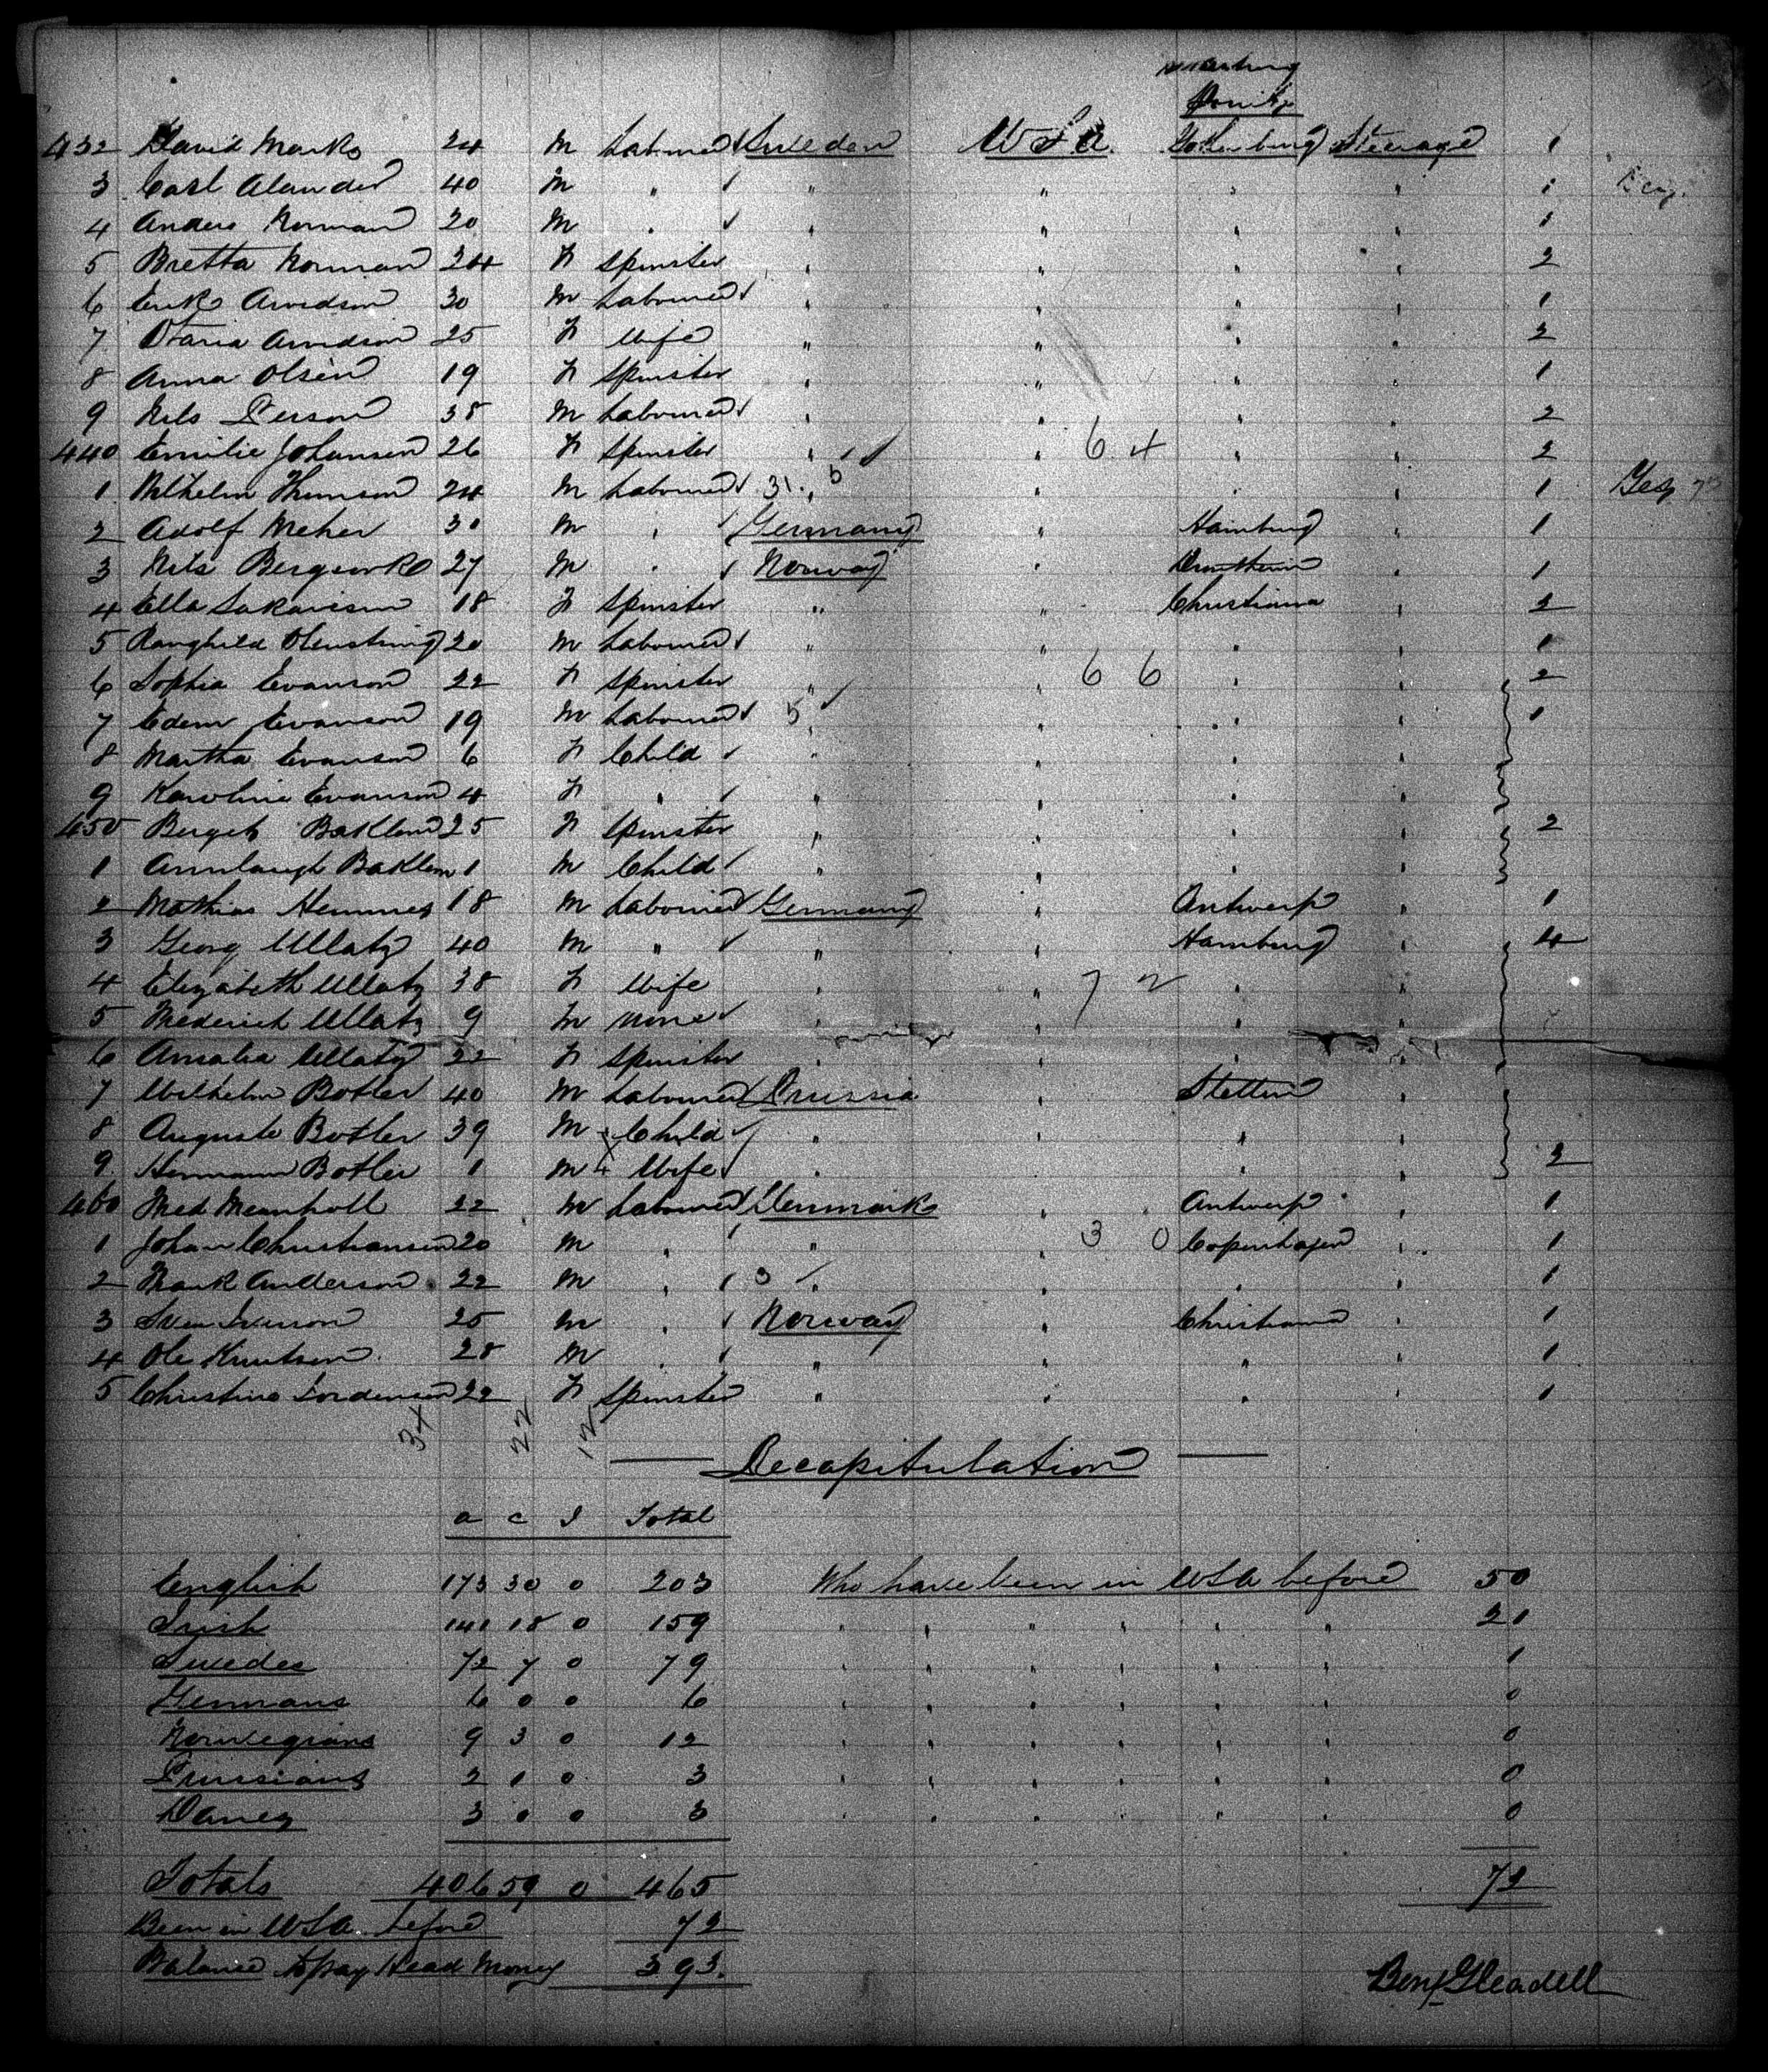 432 David Marks 24 M Labourer Sweden U S A. Gothenburg Steerage 1
3 Carl Alander 40 M " " " " " 1
4 Anders Norman 20 M " " " " " 1
5 Bretta Norman 24 F Spinster " " " " 2
6 Erik Arvidson 30 M Labourer " " " " 1
7 Maria Arvidson 25 F Wife " " " " 2
8 Anna Olsen 19 F Spinster " " " " 1
9 Nils Person 38 M Labourer " " " " 2
440 Emilie Johansen 26 F Spinster " " 6 4 " " 2
1 Wilhelm Thomson 24 M Labourer 31 " 5 " " " 1 Yes
2 Adolf Meher 30 M " Germany " Hamburg " 1
3 Nils 27 M " Norway " Drontheim " 1
4 Ella Sakarison 18 F Spinster " " Christiana " 2
5 Ranghild 20 M Labourer " " " " 1
6 Sophia Evanson 22 F Spinster " " 6 6 " " 2
7 Edem Evanson 19 M Labourer 5 " " " 1
8 Martha Evanson 6 F Child " " " "
9 Karoline Evanson 4 F " " " " "
450 Berget Baklem 25 F Spinster " " " " 2
1 Baklem 1 M Child " " " "
2 Mathias Hemmes 18 M Labourer Germany " Antwerp " 1
3 Georg Ullatz 40 M " " " Hamburg " 4
4 Elizabeth Ullatz 38 F Wife " " 7 2 " "
5 Frederick Ullatz 9 M None " " " "
6 Amalia Ullatz 22 F Spinster " " " "
7 Wilhelm Botler 40 M Labourer Prussia " Stettin "
8 Auguste Botler 39 M Child " " " "
9 Hermann Botler 1 M Wife " " " " 2
460 Fred 22 M Labourer Denmark " Antwerp " 1
1 Johan Christiansen 20 M " " " 3 0 Copenhagen " 1
2 Frank Anderson 22 M " 3 " " " " 1
3 Sven Iverson 25 M " Norway " Christiana " 1
4 Ole Knutson 28 M " " " " " 1
5 Christina 22 F Spinster " " " " 1
34 22 12
Recapitulation
a c I Total
English 173 30 0 203 Who have been in USA before 50
Irish 141 18 0 159 " " " " " " 21
Swedes 72 7 0 79 " " " " " " 1
Germans 6 0 0 6 " " " " " " 0
Norwegians 9 3 0 12 " " " " " " 0
Prussians 2 1 0 3 " " " " " " 0
Danes 3 0 0 3 " " " " " " 0
Totals 406 59 0 465 72
Been in USA before 72
Balance to pay Head Money 393.
Benj Gleadell